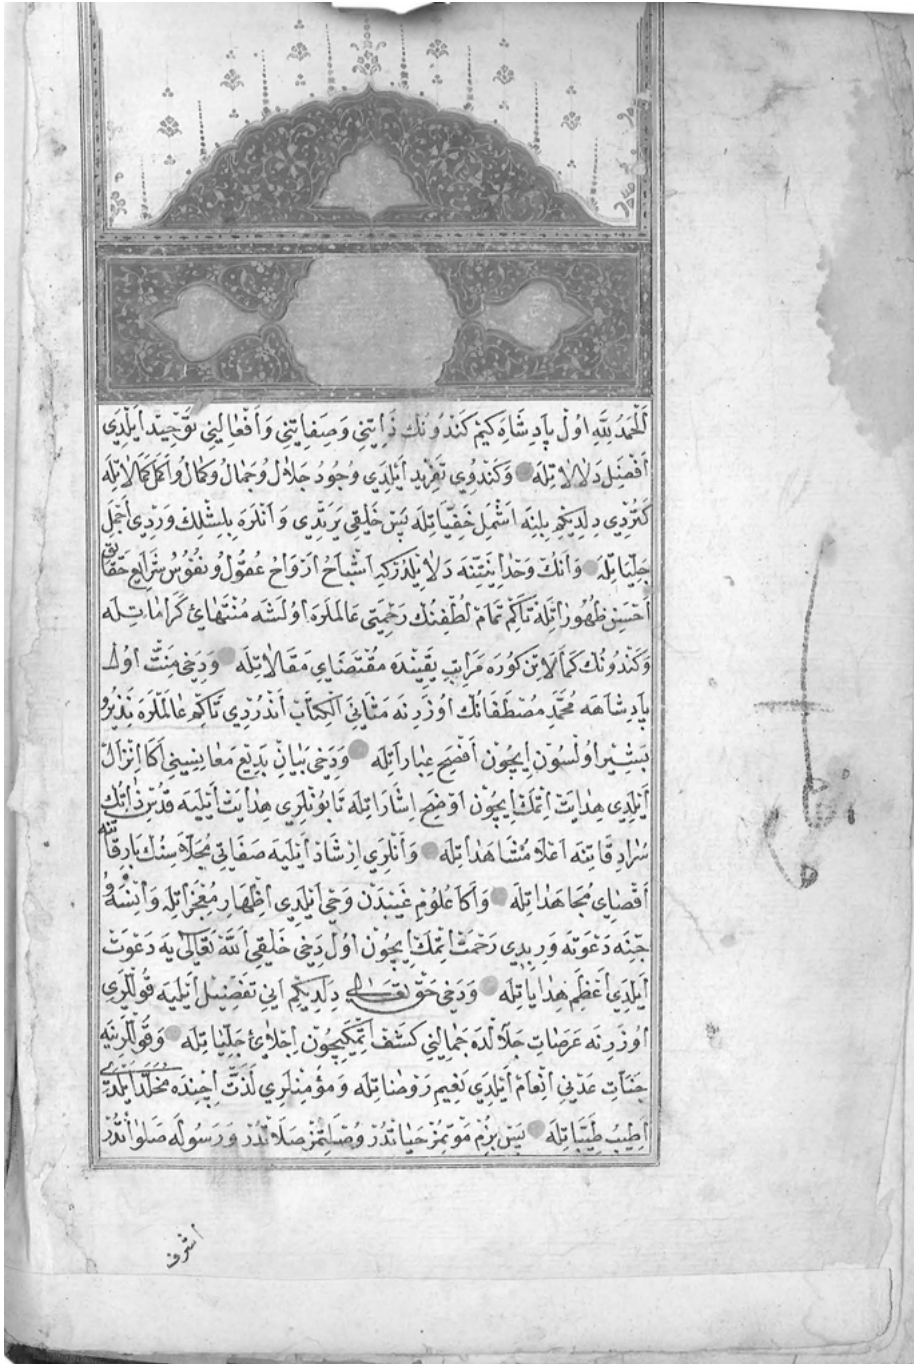 اَلْحَمْدُ لِلّٰهِ اوُلْ پَادِشَاهَ كِيمْ كَنْدُونُكْ ذَاتِنِي وَصِفَاتِنِي وَاَفْعَالِينِي تَوْحِيدْ اَيْلَدِي
اَفْضَلِ دَلَالَاتِلَهْ وَكَنْدوُيِي تَفْرِيدْ اَيْلَدِي وُجُودُ جَلَالُ وُجَمَالُ وُكَمَالُ وُاَكْمَلِ كَمَالَاتِلَهْ
دِلَدِيكِمْ بِلِنَهْ اَشْمَلِ خَفِيَّاتِلَهْ پَسْ خَلْقِي يَرَتْدِي وَانْلَرَهْ بِلِشْلِكْ وِرْدِي اَجْمَلِ
جَلِيَّاتِلَهْ وَانُكْ وَحْدَانِيَّتِنَهْ دَلَالَتِلَدُرْكِهْ اَشْبَاحُ اَرْوَاحُ عُقُولُ وُنُفُوسُ شَرَايِعِ حَقَايِقْ
اَحْسَنِ ظُهُورَاتِلَهْ تَاكِمْ تَمَامْ لُطْفِنُكْ رَحْمَتِي عَالَمْلَرَهْ اوُلَشَهْ مُنْتَهَائِ كَرَامَاتِلَهْ
وَكَنْدُونُكْ كَمَالَاتِنْ كُورَهْ مَرَاتِبِ يَقِينْدَهْ مُقْتَضَايِ مَقَالَاتِلَهْ وَدَخِي مِنَّتْ اوُلْ
پَادِشَاهَهْ مُحَمَّدِ مُصْطَفَانُكْ اوُزْرِنَهْ مَثَانِيَ الْكِتَابْ اَنْدُرْدِي تَاكِمْ عَالَمْلَرَهْ نَذِيرُ وُ
بَشِيرْ اوُلْسُونْ اِيچُونْ اَفْصَحِ عِبَارَاتِلَهْ وَدَخِي بَيَانِ بَدِيعِ مَعَانِيسِينِي اَكَا اِنْزَالْ
اَيْلَدِي هِدَايَتْ اِتْمَكْ اِيچُونْ اَوْضَحِ اِشَارَاتِلَهْ تَابُونْلَرِي هِدَايَتْ اَيْلَيَهْ قُدْسِ ذَاتِنُكْ
سُرَادِقَاتِنَهْ اَعْلَا مُشَاهَدَاتِلَهْ وَانْلَرِي اِرْشَادْ اَيْلَيَهْ صَفَاتِي مُجَلَّاسِنُكْ بَارِقَاتِنَهْ
اَقْصَايِ مُجَاهَدَاتِلَهْ وَاَكَا عُلُومِ غَيْبْدَنْ وَحْي اَيْلَدِي اِظْهَارِ مُعْجِزَاتِلَهْ وَاِنْسَهْ وُ
جِنَّهْ دَعْوَتَهْ وِرِبِدِي رَحْمَتْ اِتْمَكْ اِيچُونْ اوُلْ دَخِي خَلْقِي اَللّٰهْ تَعَالَى يَهْ دَعْوَتْ
اَيْلَدِي اَعْظَمِ هِدَايَاتِلَهْ وَدَخِي حَقْ تَعَالَى دِلَدِيكِمْ اَنِي تَفْضِيلْ اَيْلَيَهْ قُولْلَرِي
اوُزْرِنَهْ عَرَصَاتِ جَلَالْدَهْ جَمَالِينِي كَشْفْ اِتْمَكِيچُونْ اِجْلَائِ جَلِيَّاتِلَهْ وَقُولْلَرِينَهْ
جَنَّاتِ عَدْنِي اِنْعَامْ اَيْلَدِي نَعِيمِ رَوْضَاتِلَهْ وَمُؤْمِنْلَرِي لَذَّتْ اِچِنْدَهْ مُخَلَّدْ اَيْلَدِي
اَطْيَبُ طَيِّبَاتِلَهْ پَسْ بِزِمْ مَوْتِمِزْ حَيَاتْدُرْ وُصْلَتِمِزْ صَلَاتْدُرْ وَرَسُولَهْ صَلَوَاتْدُرْ
اشرف